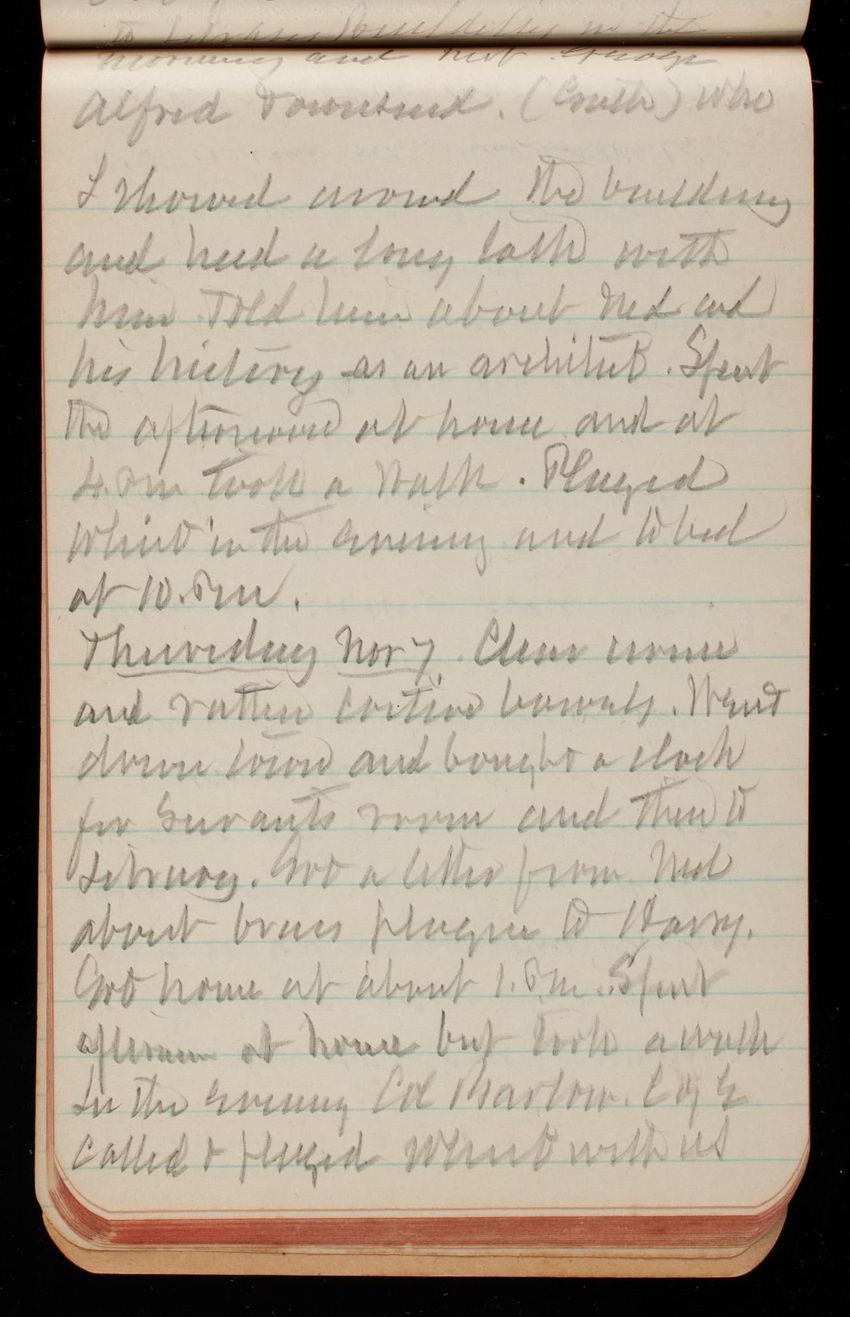 to Library Building in the
morning and met George
Alfred Townsend. (Gath) who
I showed around the building
and had a long talk with
him. Told him about Ned and
his history as an architect. Spent
the afternoon at home and at
4. Pm took a walk. Played
Whist in the evening and to bed
at 10. Pm.
Thursday Nov 7. Clear
and rather costive bowels. Went
down town and bought a clock
for Servants room and then to
Library. Got a letter from Ned
about brass plaque to Harry.
Got home at about 1. Pm. Spent
afternoon at home but took a walk
In the evening Col Barlow. C of E
called & played Whist with us